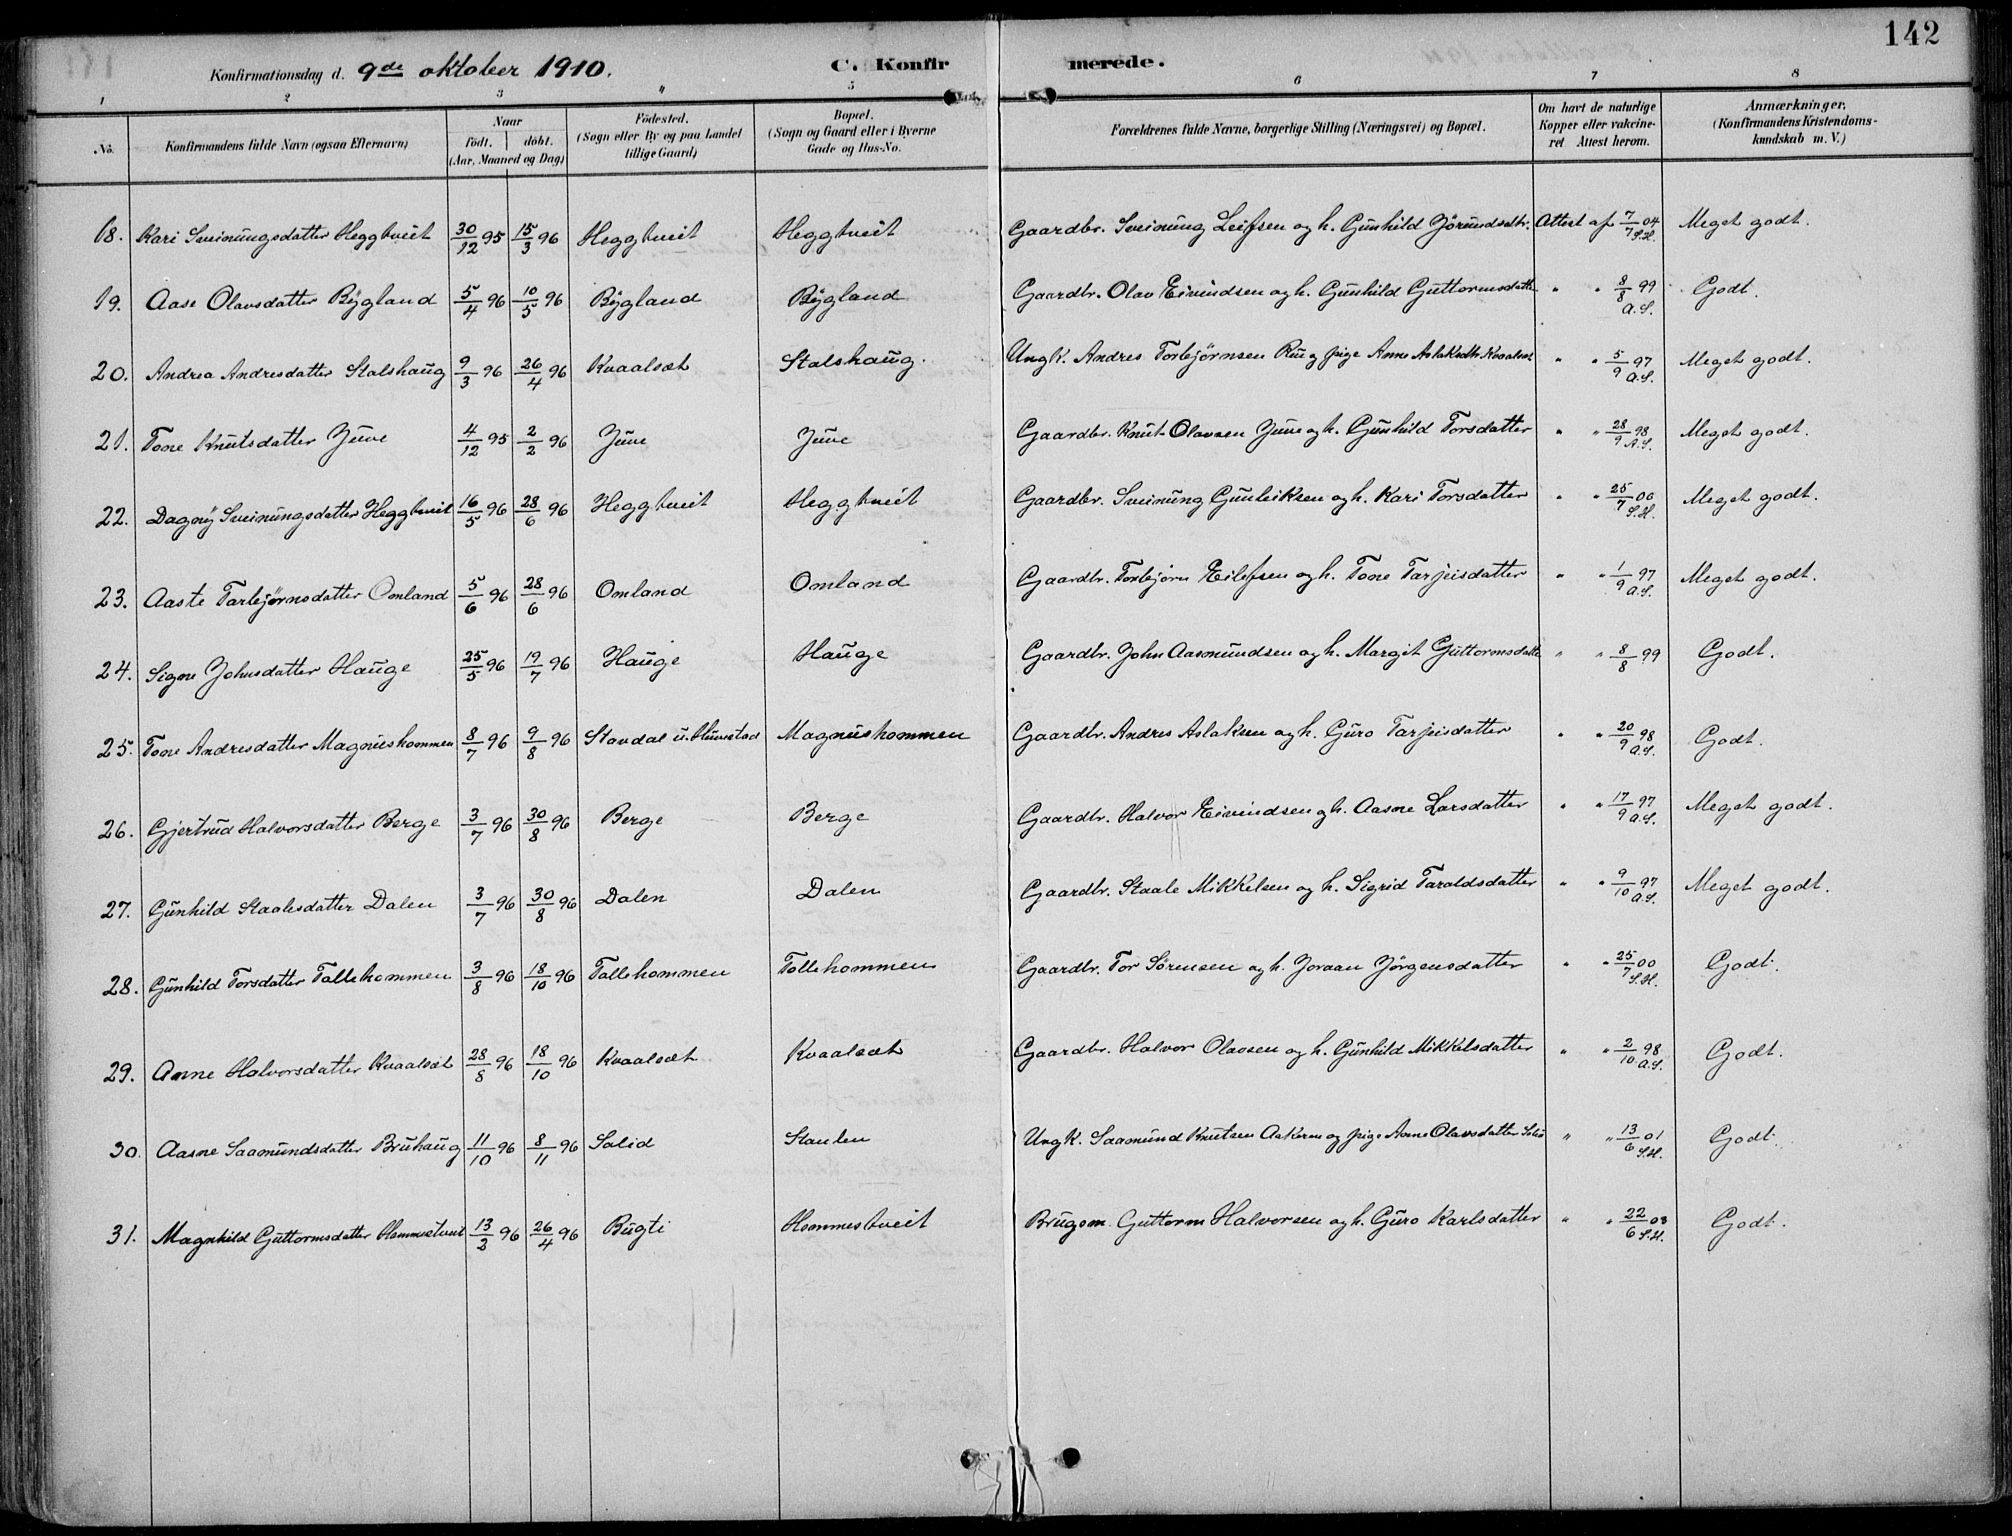 142
Konfirmationsdag d. 9de oktober 1910. C. Konfirmerede.
1 2 3 4 5 6 7 8
No. | Konfirmandens fulde Navn (ogsaa Efternavn) | Naar født. døbt. (Aar, Maaned og Dag) | Fødested. (Sogn eller By og paa Landet tillige Gaard) | Bopæl. (Sogn og Gaard eller i Byerne Gade og Hus-No. | Forældrenes fulde Navne, borgerlige Stilling (Næringsvei) og Bopæl. | Om havt de naturlige Kopper eller vakcineret Attest herom. | Anmærkninger. (Konfirmandens Kristendomskundskab m. V.)
18. Kari Sveinungsdatter Heggtveit 30/12 95 15/3 96 Heggtveit Heggtveit Gaardbr. Sveinung Leifsen og h. Gunhild Jørundsdtr. Attest af 7/7 04 S.H. Meget godt.
19. Aase Olavsdatter Bygland 5/4 96 10/5 96 Bygland Bygland Gaardbr. Olav Eivindsen og h. Gunhild Guttormsdatter " " 8/8 99 A.S. Godt.
20. Andrea Andresdatter Stalshaug 9/3 96 26/4 96 Kvaalsæt Stalshaug. Ungk. Andres Torbjørnsen Rue og pige Anne Aslaksdtr. Kvaalset " " 5/9 97 A.S. Meget godt.
21. Tone Knutsdatter Juve 4/12 95 2/2 96 Juve Juve Gaardbr. Knut Olavsen Juve og h. Gunhild Torsdatter " " 28/9 98 A.S. Meget godt.
22. Dagny Sveinungsdatter Heggtveit 16/5 96 28/6 96 Heggtveit Heggtveit Gaardbr. Sveinung Gunleiksen og h. Kari Torsdatter " " 25/7 00 S.H. Meget godt.
23. Aaste Tarbjørnsdatter Omland 5/6 96 28/6 96 Omland Omland Gaardbr. Torbjørn Eilefsen og h. Tone Tarjeisdatter " " 1/9 97 A.S. Meget godt.
24. Signe Johnsdatter Hauge 25/5 96 19/7 96 Hauge Hauge Gaardbr. John Aasmundsen og h. Margit Guttormsdatter " " 8/8 99 Godt.
25. Tone Andresdatter Magnushommen 8/7 96 9/8 96 Stavdal u. Magnushommen Gaardbr. Andres Aslaksen og h. Guro Tarjeisdatter " " 20/9 98 A.S. Godt.
26. Gjertrud Halvorsdatter Berge 3/7 96 30/8 96 Berge Berge Gaardbr. Halvor Eivindsen og h. Aasne Larsdatter " " 17/9 97 A.S. Meget godt.
27. Gunhild Staalesdatter Dalen 3/7 96 30/8 96 Dalen Dalen Gaardbr. Staale Mikkelsen og h. Sigrid Taraldsdatter " " 9/10 97 A.S. Meget godt.
28. Gunhild Torsdatter Tollehommen 3/8 96 18/10 96 Tollehommen Tollehommen Gaardbr. Tor Sørensen og h. Joraan Jørgensdatter " " 25/7 00 S.H. Godt.
29. Anne Halvorsdatter Kvaalsæt 28/8 96 18/10 96 Kvaalsæt Kvaalsæt Gaardbr. Halvor Olavsen og h. Gunhild Mikkelsdatter " " 2/10 98 A.S. Godt.
30. Aasne Saamundsdatter Bruhaug 11/10 96 8/11 96 Solid Ungk. Saamund Knutsen Aakern og pige Anne Olavsdatter " " 13/6 01 S.H. Godt.
31. Magnhild Guttormsdatter Hommestveit 13/2 96 26/4 96 Bugti Hommestveit Brugsm. Guttorm Halvorsen og h. Guro Karlsdatter " " 22/6 03 S.H. Godt.